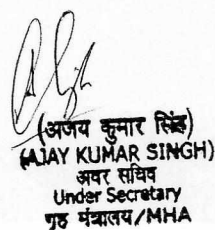 (अजय कुमार सिंह)
(AJAY KUMAR SINGH)
अवर सचिव
Under Secretary
गृह मंत्रालय/MHA